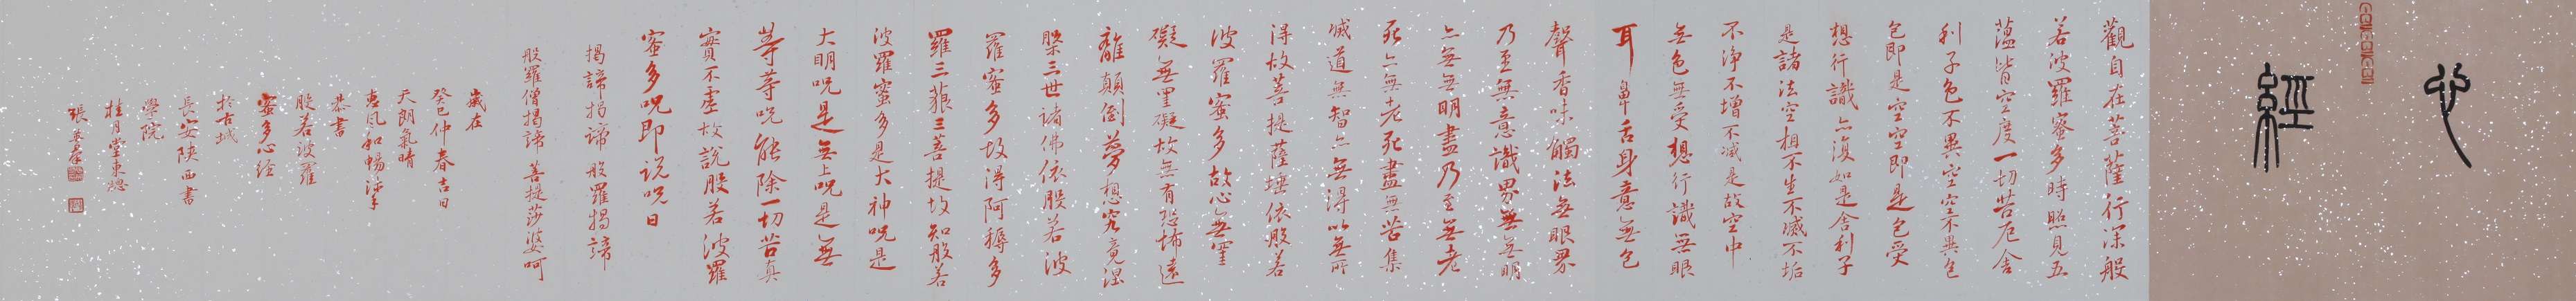 心經
觀自在菩薩行深般
若波羅蜜多時照見五
蘊皆空度一切苦厄舍
利子色不異空空不異色
色即是空空即是色受
想行識亦復如是舍利子
是諸法空相不生不滅不垢
不淨不增不減是故空中
無色無受想行識無眼
耳鼻舌身意無色
聲香味觸法無眼界
乃至無意識界無無明
亦無無明盡乃至無老
死亦無老死盡無苦集
滅道無智亦無得以無所
得故菩提薩埵依般若
波羅蜜多故心無罣
礙無罣礙故無有恐怖遠
離顛倒夢想究竟涅
槃三世諸佛依般若波
羅蜜多故得阿耨多
羅三藐三菩提故知般若
波羅蜜多是大神咒是
大明咒是無上咒是無
等等咒能除一切苦真
實不虛故說般若波羅
蜜多咒即说咒曰
揭諦揭諦般羅揭諦
般羅僧揭諦菩提莎婆呵
歲在
癸巳仲春吉日
天朗氣晴
惠风和暢
恭書
般若波羅
蜜多心经
於古城
長安陕西書
學院
桂月堂東窓
張